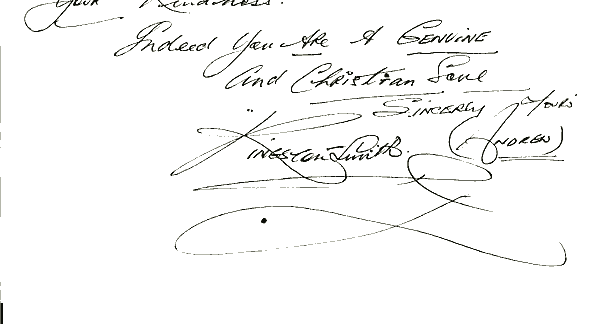 Your Kindness.
Indeed You Are A Genuine
And Christian Soul
Sincerly Yours
Kingston Smith. (Andrew)